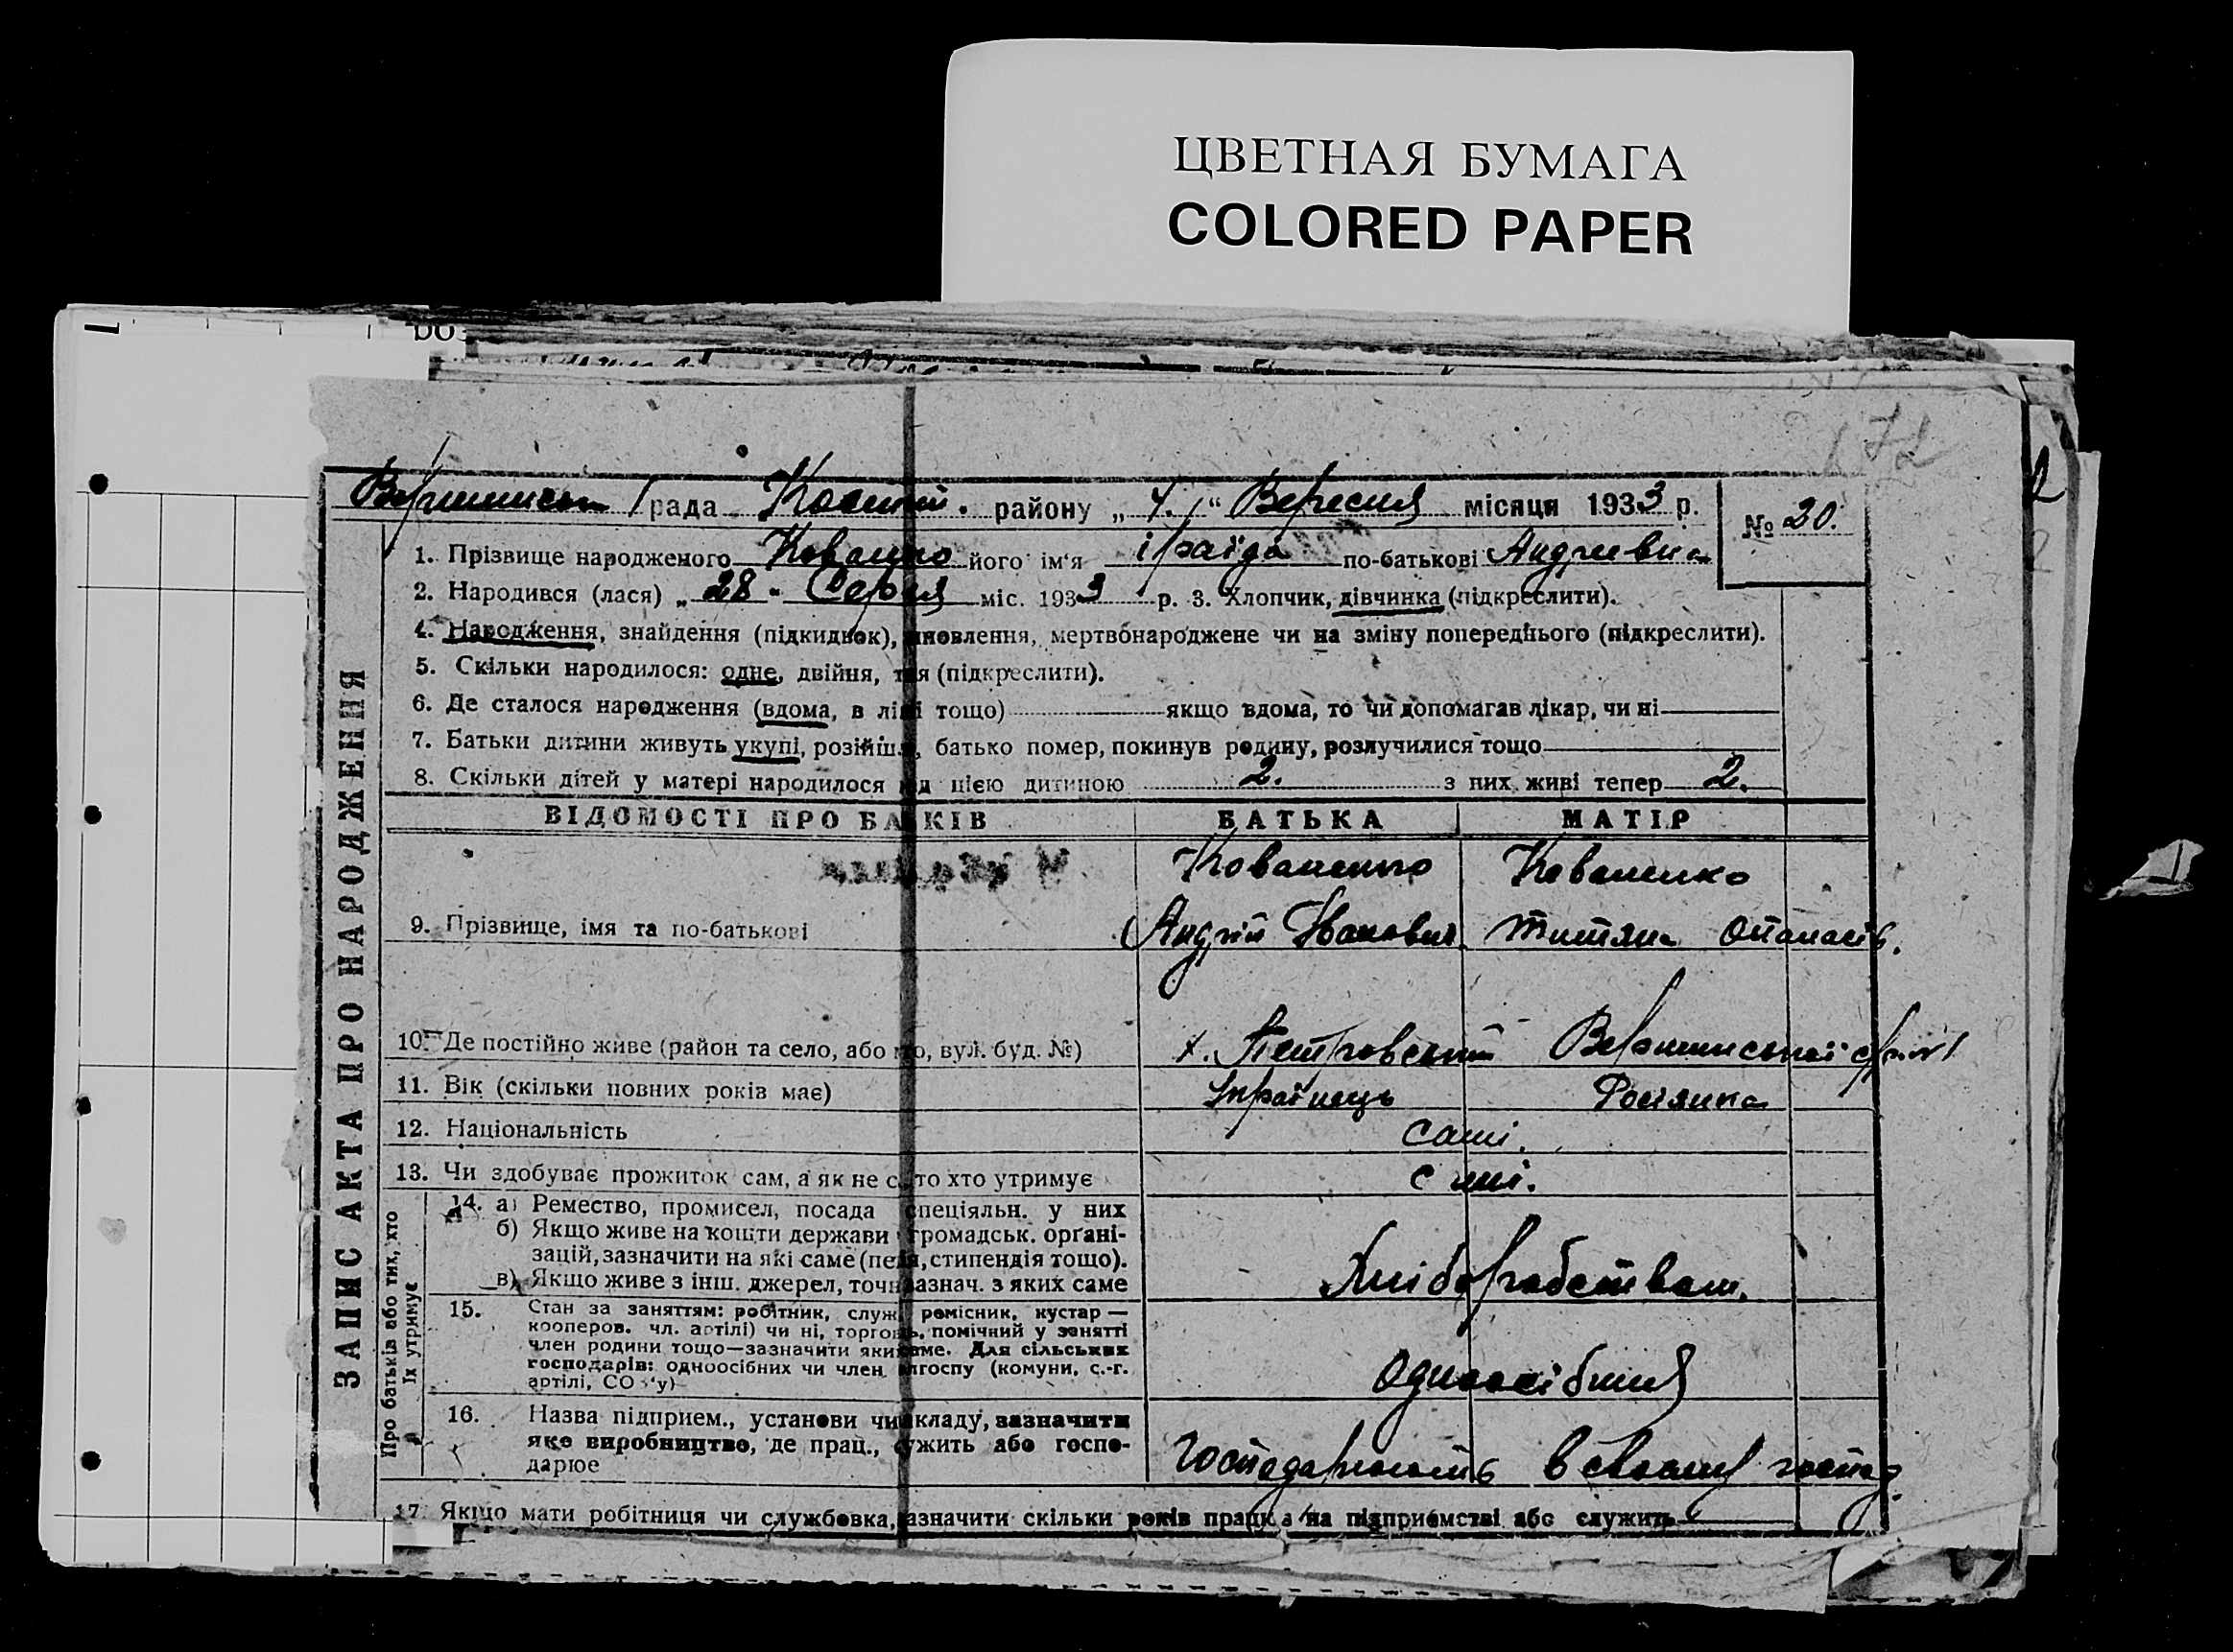 ЦВЕТНАЯ БУМАГА
COLORED PAPER
172
рада району „ 4. “ Вересня місяця 1933 р.
№ 20.
1. Прізвище народженого його ім'я іраїда по-батькові
2. Народився (лася) „ 28 “ міс. 1933 р. 3. Хлопчик, дівчинка (підкреслити).
4. Народження, знайдення (підкидьок), мертвонароджене чи на зміну попереднього (підкреслити).
5. Скільки народилося: одне, двійня, (підкреслити).
6. Де сталося народження (вдома, в тощо) якщо вдома, то чи допомагав лікар, чи ні
7. Батьки дитини живуть укупі, батько помер, покинув родину, розлучилися тощо
8. Скільки дітей у матері народилося цією дитиною 2. з них живі тепер 2.
ВІДОМОСТІ ПРО БАТЬКІВ БАТЬКА МАТІР
Коваленко Коваленко
9. Прізвище, імя та по-батькові Андрій Іванович
10. Де постійно живе (район та село, або вул. буд. №) х. Петровський
11. Вік (скільки повних років має) Українець Росіянка
12. Національність сами.
13. Чи здобуває прожиток сам, а як не то хто утримує сами.
ЗАПИС АКТА ПРО НАРОДЖЕННЯ
Про батьків або тих, хто
їх утримує
14. а) Ремество, промисел, посада спеціяльн. у них
б) Якщо живе на кошти держави громадськ. орґані-
зацій, зазначити на які саме стипендія тощо).
в) Якщо живе з інш. джерел, з яких саме
Хліборобством.
15. Стан за заняттям: робітник, ремісник, кустар —
кооперов. чл. артілі) чи ні, помічний у занятті
член родини тощо—зазначити Для сільських
господарів: одноосібних чи член (комуни, с.-г.
артілі,
16. Назва підприєм., установи чи зазначити
яке виробництво, де прац., або госпо-
дарюе
17. Якщо мати робітниця чи службовка, зазначити скільки років працює на підприємстві або служить